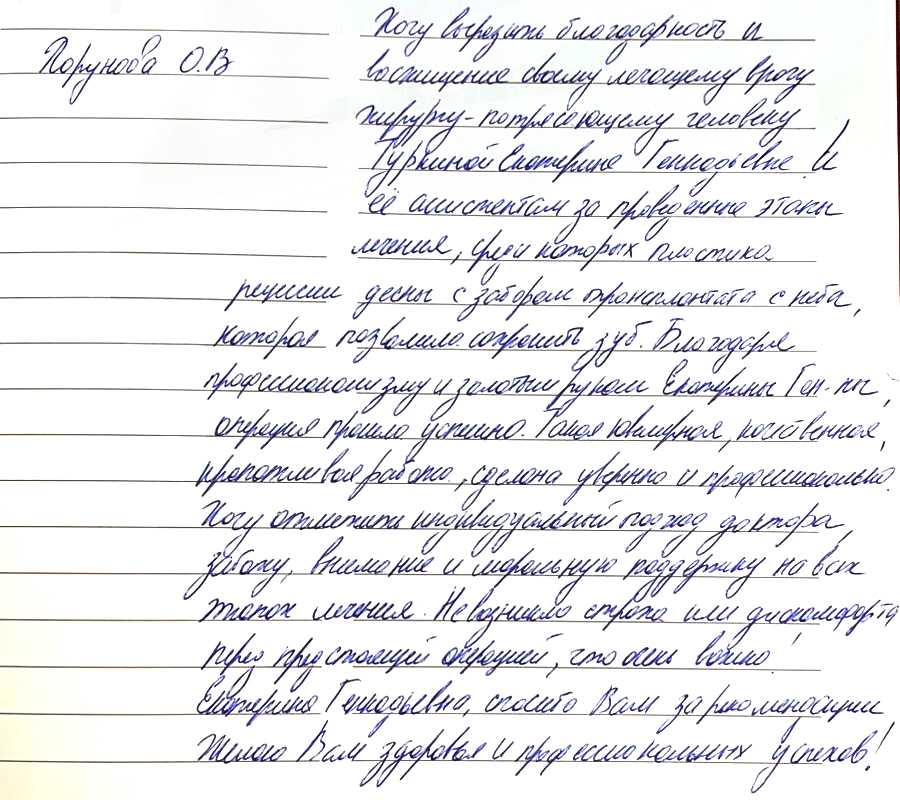 Хочу выразить благодарность и
Порунова О.В
восхищение своему лечащему врачу
хирургу - потрясающему человеку
Туркиной Екатерине Геннадьевне и
её ассистентам за проведенные этапы
лечения, среди которых пластика
рецессии десны с забором трансплантата с неба,
которая позволила сохранить зуб. Благодаря
профессионализму и золотым рукам Екатерины Ген-ны,
операция прошла успешно. Такая ювелирная, качественная,
кропотливая работа, сделана уверенно и профессионально.
Хочу отметить индивидуальный подход доктора,
заботу, внимание и моральную поддержку на всех
этапах лечения. Не возникло страха или дискомфорта
перед предстоящей операцией, что очень важно!
Екатерина Геннадьевна, спасибо Вам за рекомендации
Желаю Вам здоровья и профессиональных успехов!